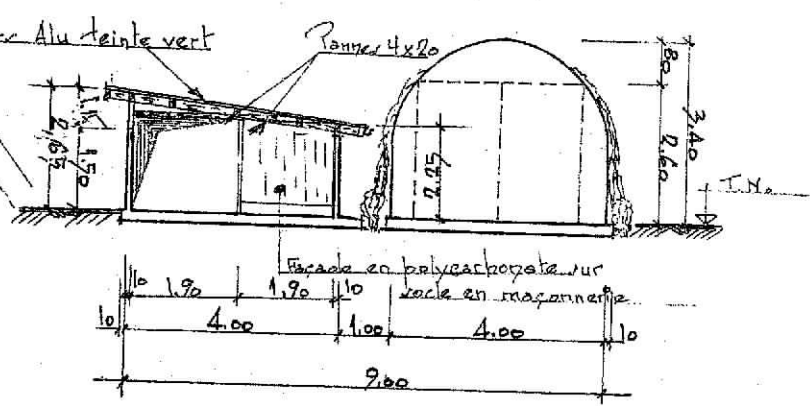 Alu teinte vert
Pannes 4x20
80
3.40
2.60
2.65
1.50
2.25
T.N.
Façade en polycarbonate sur
socle en maçonnerie
10 1.90 1.90 10
10 4.00 1.00 4.00 10
9.00